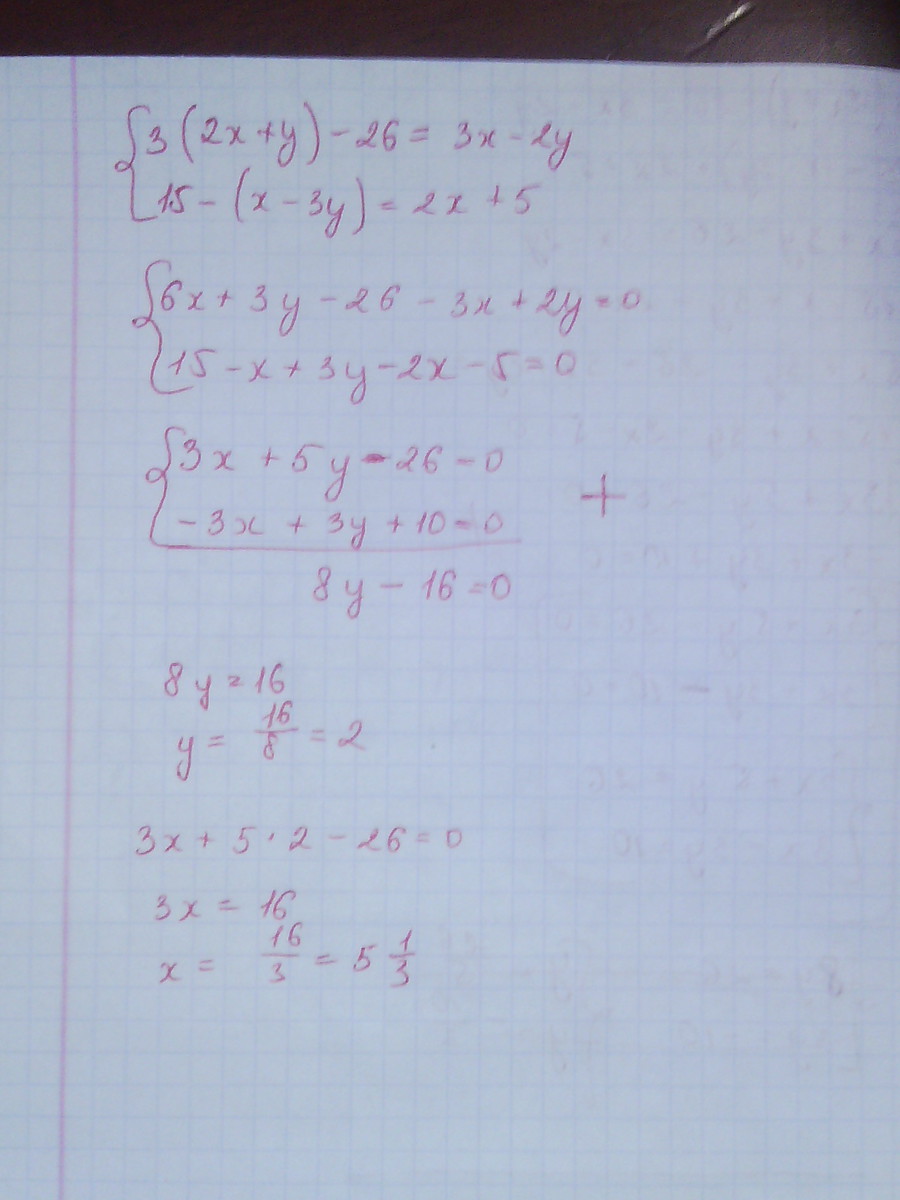 {3(2x+y)-26=3x-2y
15-(x-3y)=2x+5
{6x+3y-26-3x+2y=0
15-x+3y-2x-5=0
{3x+5y-26=0
-3x+3y+10=0 +
8y-16=0
8y=16
y=16/8=2
3x+5·2-26=0
3x=16
x=16/3=5 1/3